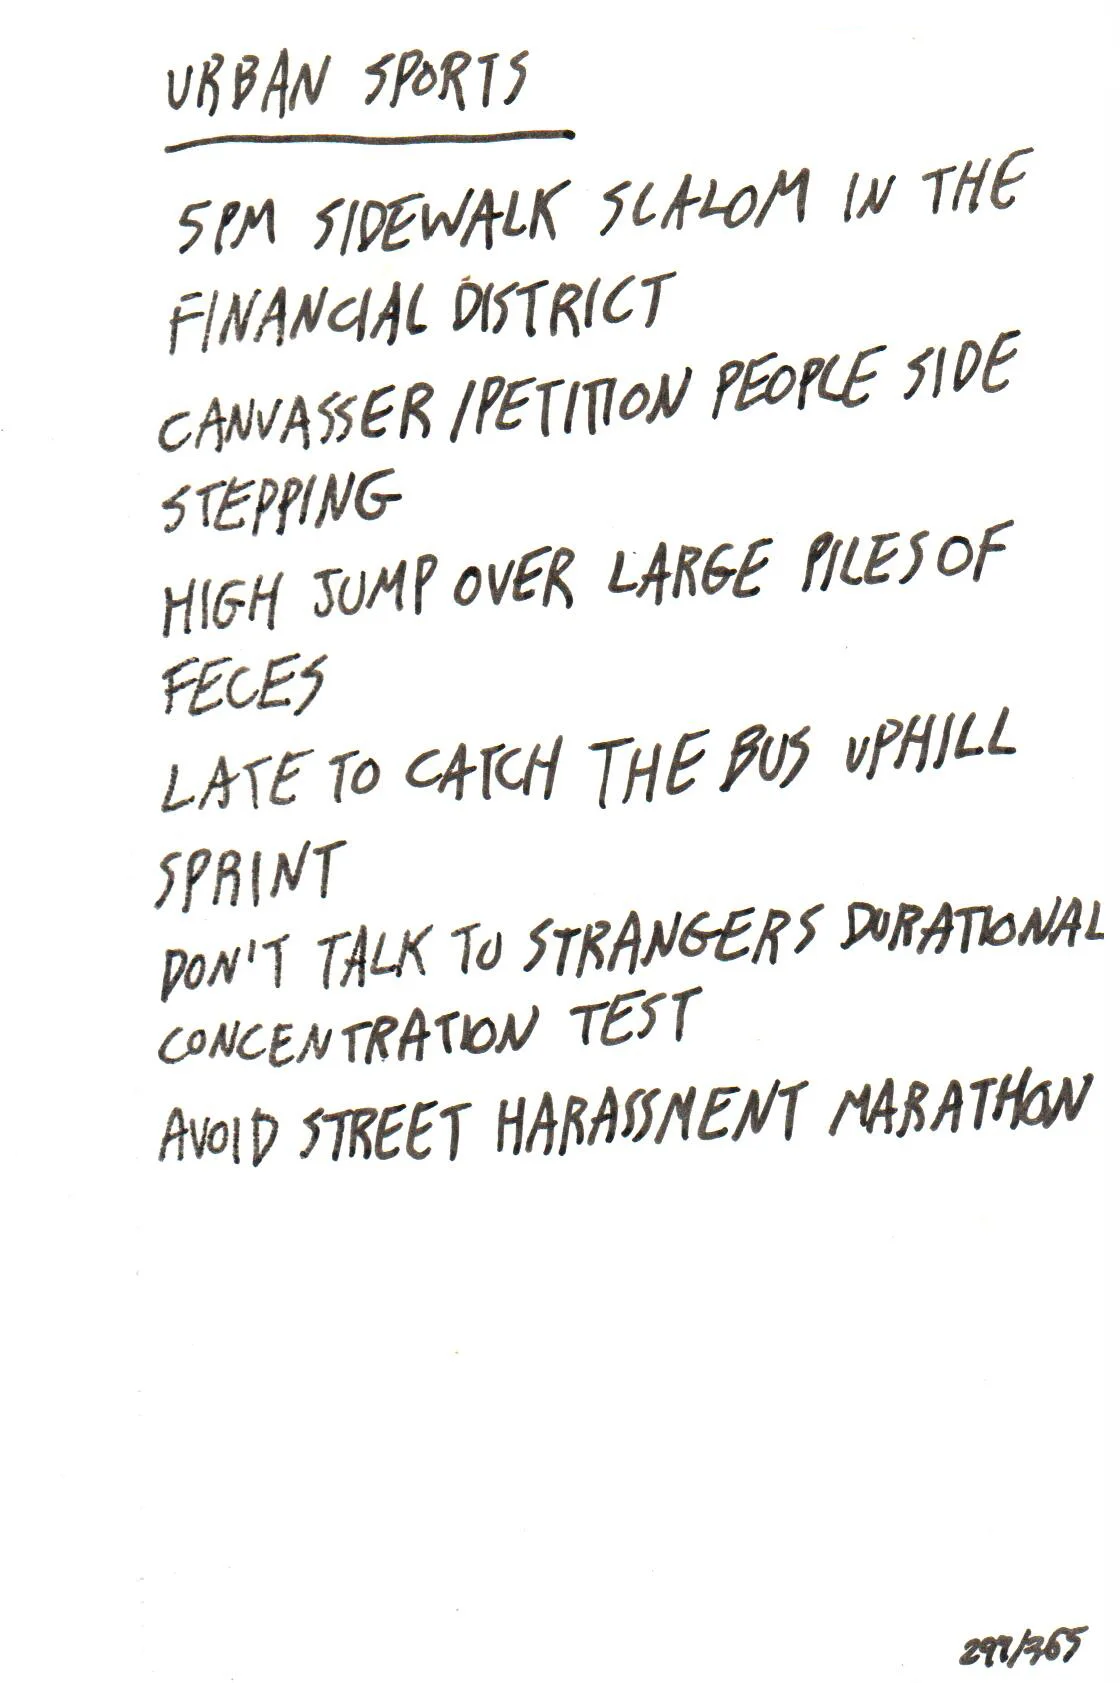 URBAN SPORTS
5PM SIDEWALK SCALOM IN THE
FINANCIAL DISTRICT
CANVASSER/PETITION PEOPLE SIDE
STEPPING
HIGH JUMP OVER LARGE PILES OF
FECES
LATE TO CATCH THE BUS UPHILL
SPRINT
DON'T TALK TO STRANGERS DURATIONAL
CONCENTRATION TEST
AVOID STREET HARASSMENT MARATHON
297/365